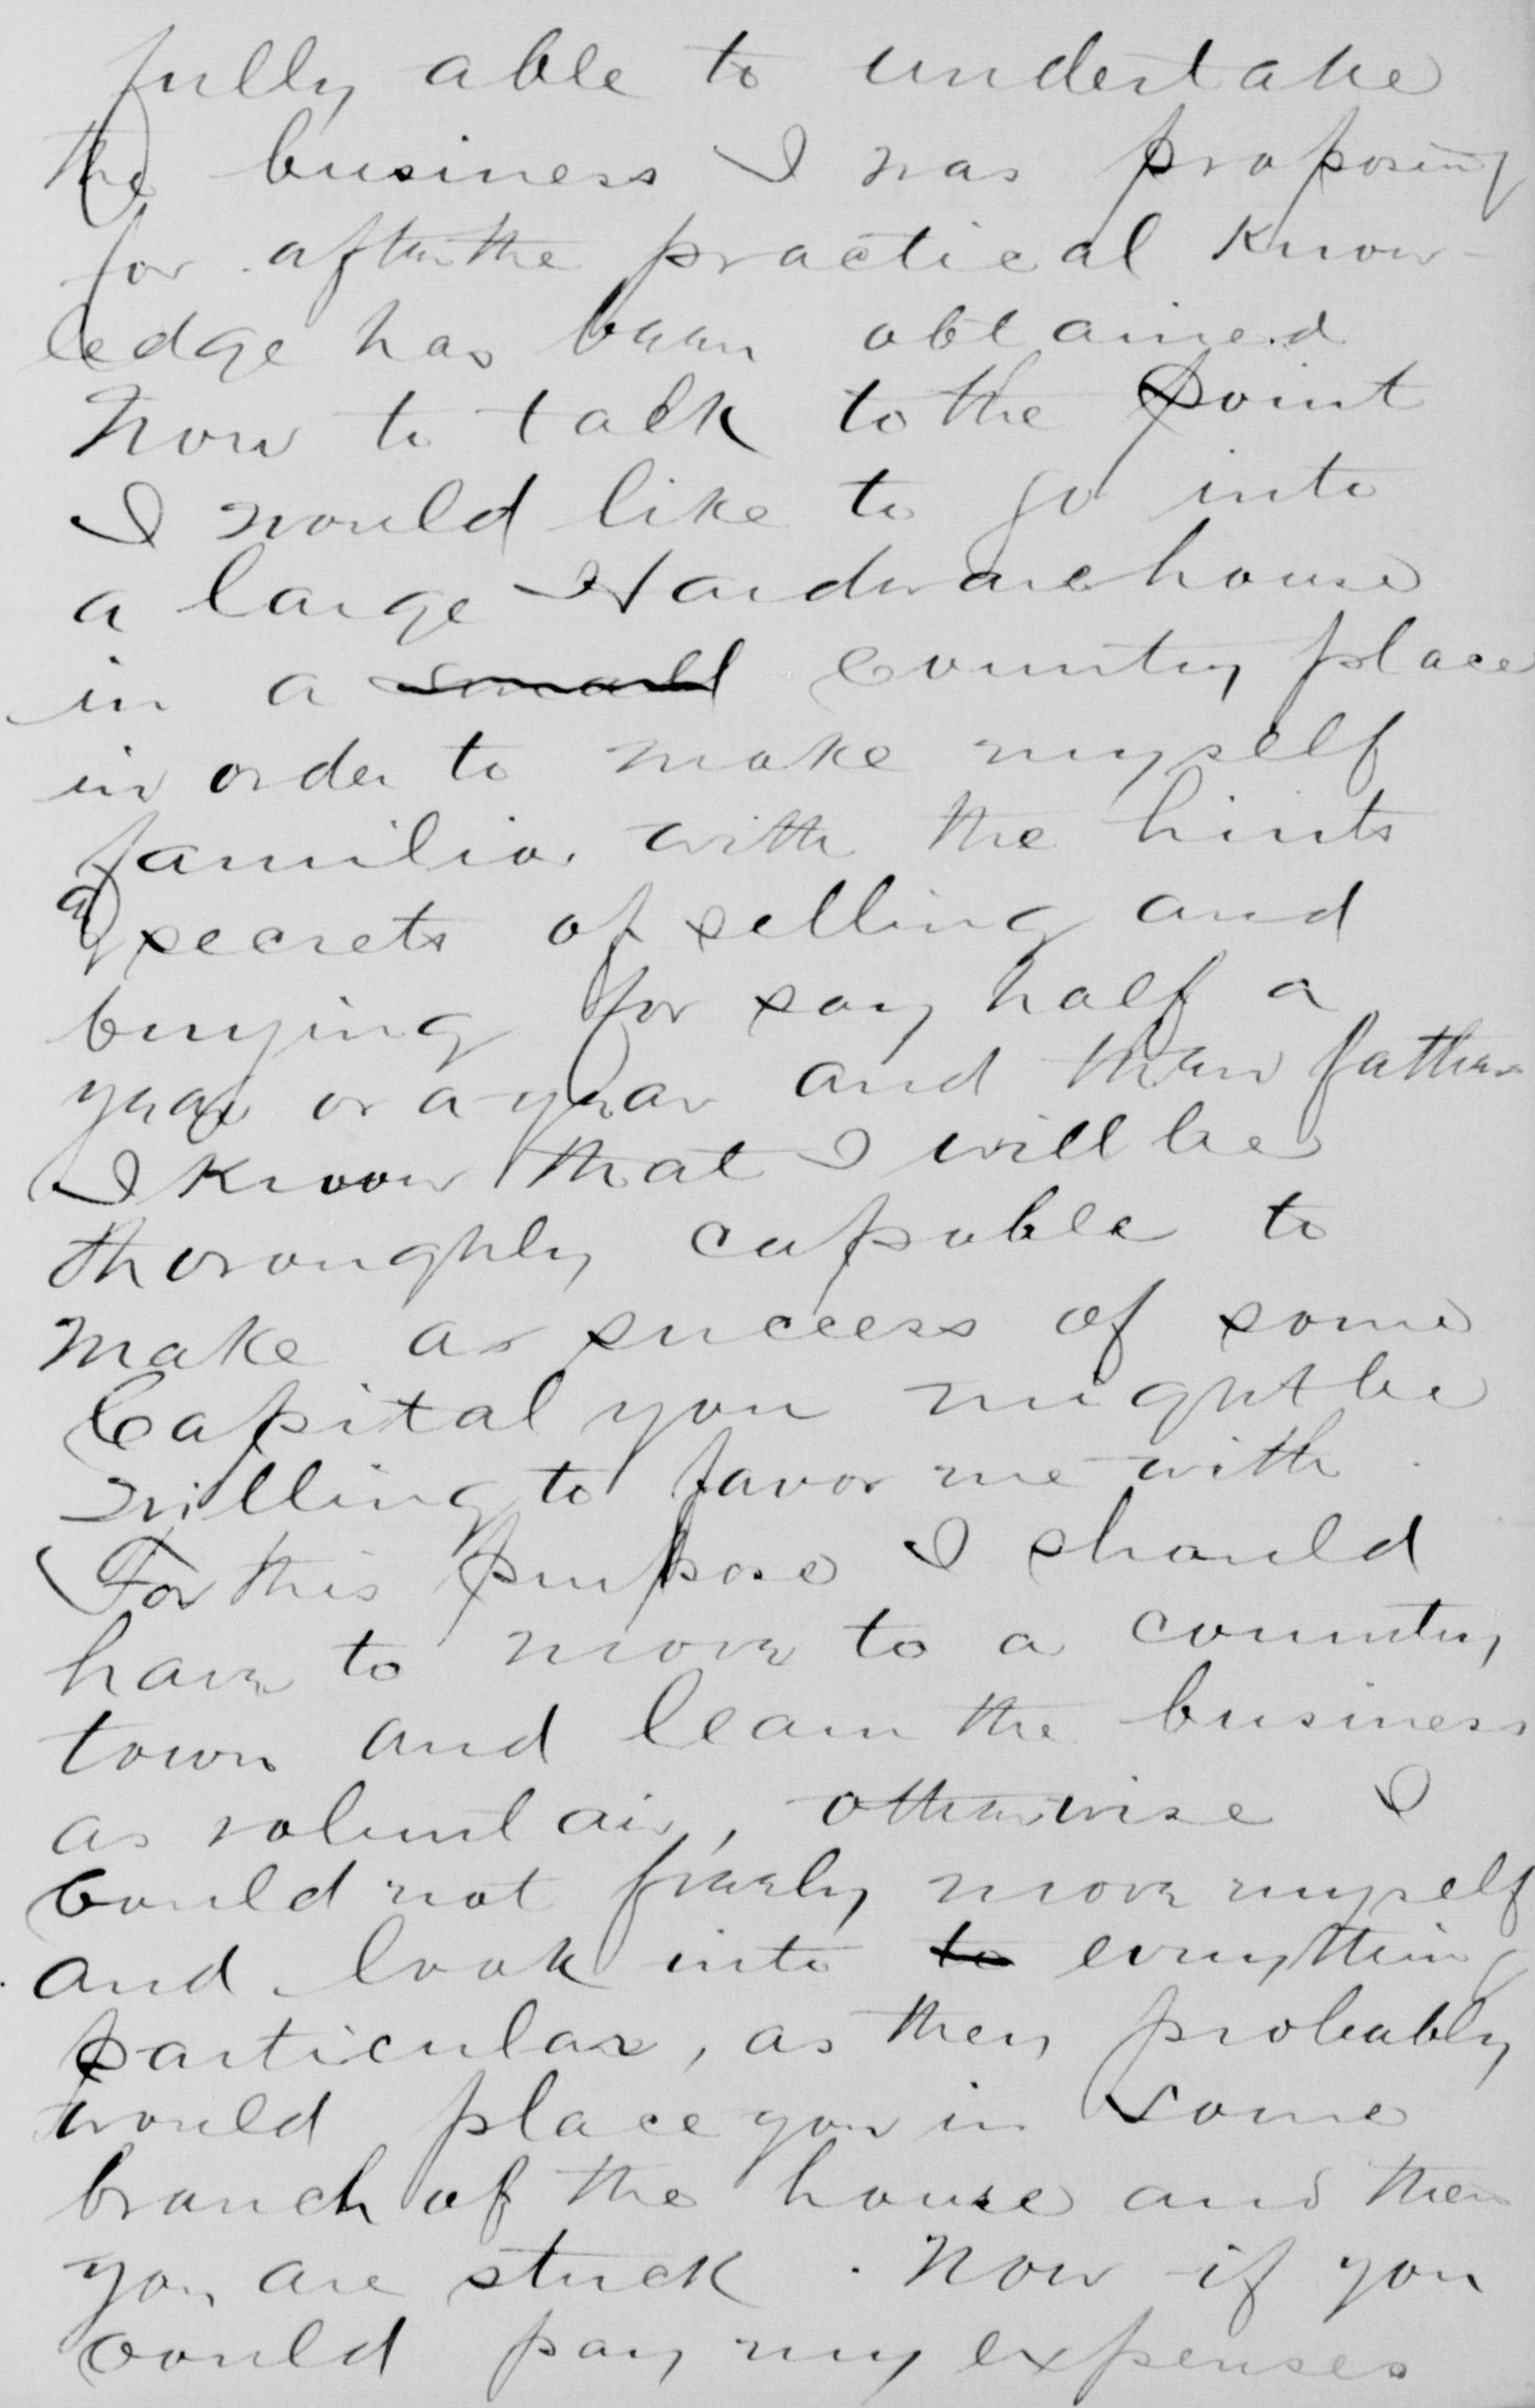 fully able to undertake
the business I was proposing
for after the practical know-
ledge has been obtained
Now to talk to the point
I would like to go into
a large Hardwarehouse
in a ~~small~~ Country place
in order to make myself
familiar with the hints
a secrets of selling and
buying for say half a
year or a year and then father
I know that I will be
thoroughly capable to
make a success of some
Capital you might be
willing to favor me with.
For this purpose I should
have to move to a country
town and learn the business
as voluntair, otherwise I
could not freely move myself
and look into ~~to~~ everything
particular, as they probably
would place you in some
branch of the house and then
you are stuck. Now if you
could pay my expenses